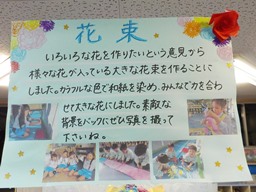 花束
いろいろな花を作りたいという意見から
様々な花が入っている大きな花束を作ることに
しました。カラフルな色で和紙を染め、みんなで力を合わ
せて大きな花にしました。素敵な
背景をバックにぜひ写真を撮って
下さいね。